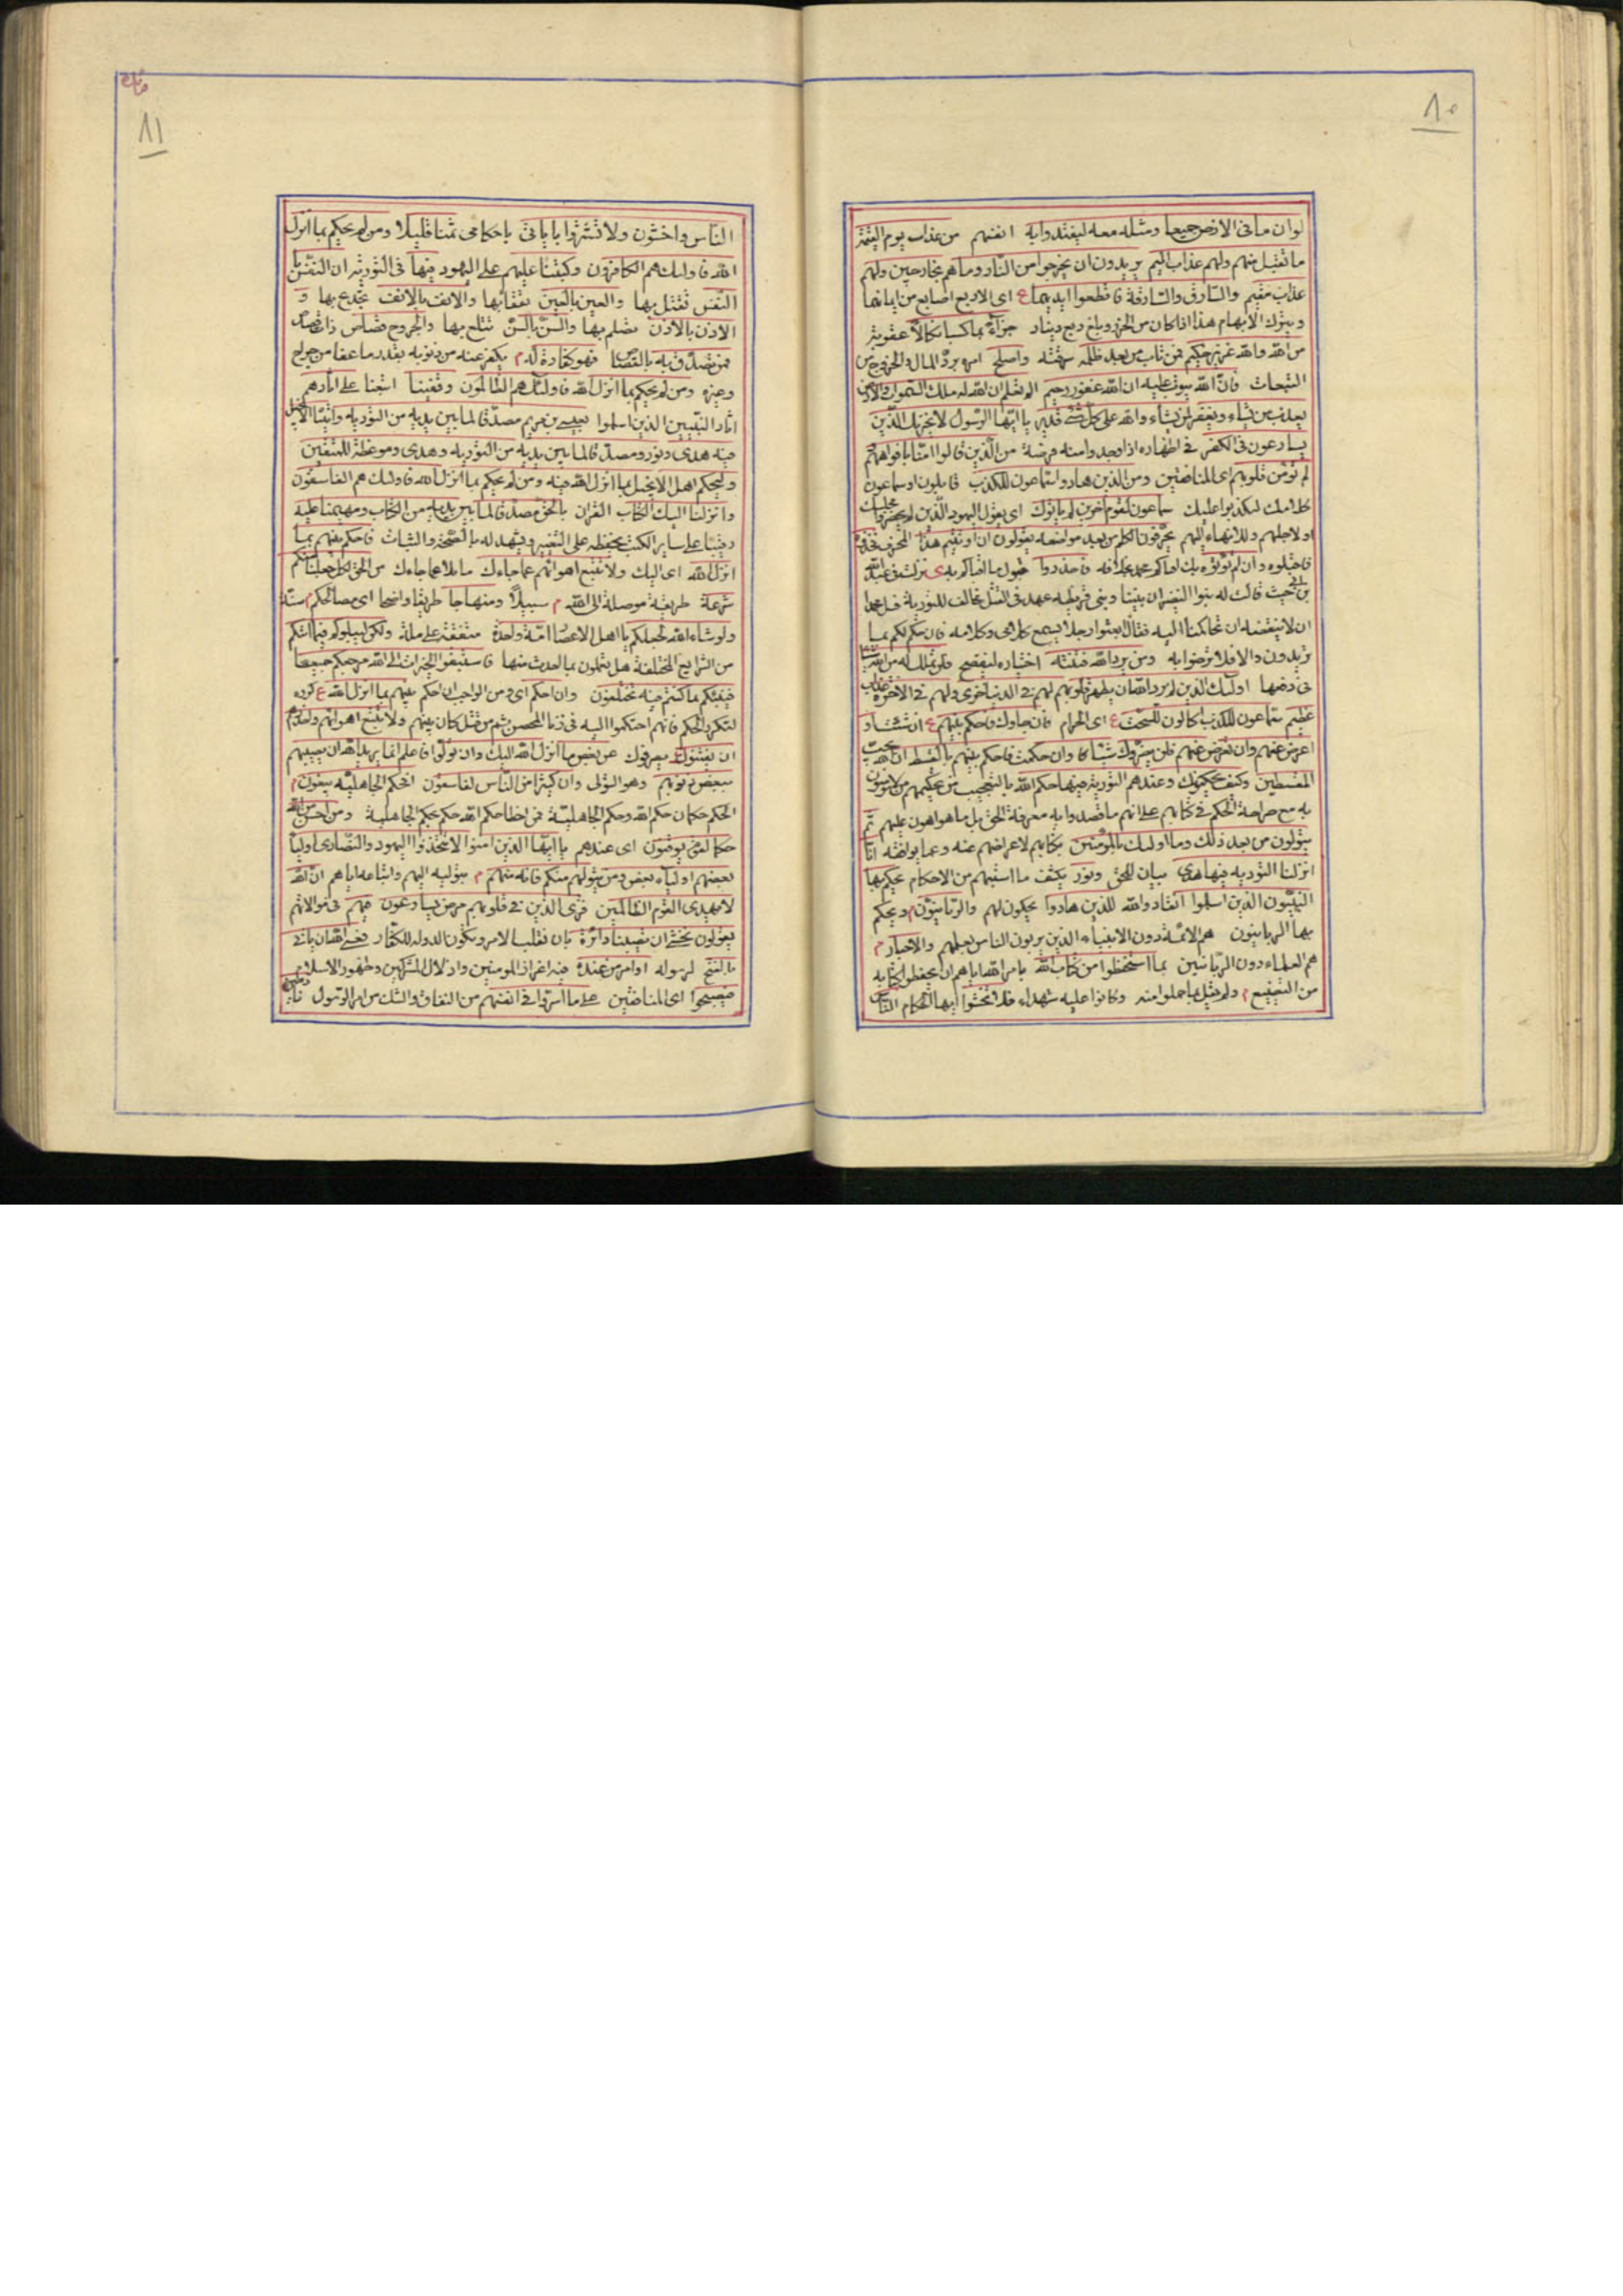 ٨٠
لو ان ما فى الارض جميعا ومثله معه ليفتدوا به انفسهم من عذاب يوم القيمة
ما تقبل منهم ولهم عذاب اليم يريدون ان يخرجوا من النار وما هم بخارجين ولهم
عذاب مقيم والسارق والسارقة فاقطعوا ايديهما ع اى الاربع اصابع من ايمانهما
ويترك الابهام هذا اذا كان من الحرز وبلغ ربع دينار جزآء بما كسبا نكالا عقوبة
من الله والله عزيز حكيم فمن تاب من بعد ظلمه سرقته واصلح امره برد المال والخروج من
التبعات فان الله يتوب عليه ان الله غفور رحيم الم تعلم ان الله له ملك السموات والارض
يعذب من يشاء ويغفر لمن يشاء والله على كل شئ قدير يا ايها الرسول لا يحزنك الذين
يسارعون فى الكفر فى اظهاره اذا وجدوا منه فرصة من الذين قالوا امنا بافواههم
لم تؤمن قلوبهم اى المنافقين ومن الذين هادوا سماعون للكذب قابلون او سماعون
كلامك ليكذبوا عليك سماعون لقوم اخرين لم ياتوك اى يعول اليهود الذين لم يحضروا مجلسك
او لاجلهم وللانهاء اليهم يحرفون الكلم من بعد مواضعه يقولون ان اوتيتم هذا المحرف فخذوه
فاقبلوه وان لم تؤتوه بل افتاكم محمد بخلافه فاحذروا قبول ما افتاكم به ى نزلت فى عبد الله
بن ابى حيث قالت له بنوا النضير ان بيننا وبنى قريظه عهد فى القتل مخالف للتورية فسل محمدا
ان لا ينقضه ان تحاكمنا اليه فقال ابعثوا رجلا يسمع كلامى وكلامه فان حكم لكم بما
تريدون والا فلا ترضوا به ومن يرد الله فتنته اختباره ليفضح فلن تملك له من الله شيئا
فى دفعها اولئك الذين لم يرد الله ان يطهر قلوبهم لهم فى الدنيا خزى ولهم فى الاخرة عذاب
عظيم سماعون للكذب اكالون للسحت ع اى الحرام فان جاؤك فاحكم بينهم ع ان شئت او
اعرض عنهم وان تعرض عنهم فلن يضروك شيئا كا وان حكمت فاحكم بينهم بالقسط ان الله يحب
المقسطين وكيف يحكمونك وعندهم التورية فيها حكم الله بالتعجيب من تحكيمهم من لا يؤمنون
به مع صراحة الحكم فى كتابهم على انهم ما قصدوا به معرفة الحق بل ما هو اهون عليهم ثم
يتولون من بعد ذلك وما اولئك بالمؤمنين بكتابهم لاعراضهم عنه وعما يوافقه انا
انزلنا التورية فيها هدى بيان للحق ونور يكشف ما اشتبهم من الاحكام يحكم بها
النبيون الذين اسلموا انقادوا لله للذين هادوا يحكون لهم والربانيون م ويحكم
بها الربانيون هم الائمة دون الانبياء الذين يربون الناس بعلمهم والاحبار م
هم العلماء دون الربانيين بما استحفظوا من كتاب الله بامر الله اياهم ان يحفظوا كتابه
من التضييع م ولم يقل بما حملوا منه وكانوا عليه شهداء فلا تخشوا ايها الحكام الناس
٨١
الناس واخشون ولا تشتروا باياتى باحكامى ثمنا قليلا ومن لم يحكم بما انزل
الله فاولئك هم الكافرون وكتبنا عليهم على اليهود فيها فى التورية ان النفس با
النفس تقتل بها والعين بالعين تفقا بها والانف بالانف تجدع بها و
الاذن بالاذن تصلم بها والسن بالسن تقلع بها والجروح قصاص ذات قصاص
فمن تصدق به بالقصاص فهو كفارة له م يكفر عنه من ذنوبه بقدر ما عفا من جراح
وغيره ومن لم يحكم بما انزل الله فاولئك هم الظالمون وقفينا اتبعنا على اثارهم
اثار النبيين الذين اسلموا بعيسى بن مريم مصدقا لما بين يديه من التورية واتيناه الانجيل
فيه هدى ونور ومصدقا لما بين يديه من التورية وهدى وموعظة للمتقين
وليحكم اهل الانجيل بما انزل الله فيه ومن لم يحكم بما انزل الله فاولئك هم الفاسقون
وانزلنا اليك الكتاب القران بالحق مصدقا لما بين يديه من الكتاب ومهيمنا عليه
رقيبا على ساير الكتب يحفظه على التغيير ويشهد له بالصحة والثبات فاحكم بينهم بما
انزل الله اى اليك ولا تتبع اهواءهم عما جاءك مايلا عما جاءك من الحق لكل جعلنا منكم
شرعة طريقة موصلة الى الله م سبيلا ومنهاجا طريقا واضحا اى مصالحكم م سنة
ولو شاء الله لجعلكم يا اهل الاعصار امة واحدة متفقة على ملة ولكن ليبلوكم فيما اتيكم
من الشرايع المختلفة هل تعملون بما لعدث منها فاستبقوا الخيرات الى الله مرجعكم جميعا
فينبئكم بما كنتم فيه تختلفون وان احكم اى ومن الواجب ان احكم بينهم بما انزل الله ع كرره
لتكرر الحكم فانهم احتكموا اليه فى زنا المحصن ثم من قتل كان بينهم ولا تتبع اهواءهم واحذرهم
ان يفتنوك يصرفوك عن بعض ما انزل الله اليك وان تولوا فاعلم انما يريد الله ان يصيبهم
ببعض ذنوبهم وهو التولى وان كثيرا من الناس لفاسقون افحكم الجاهلية يبغون م
الحكم حكمان حكم الله وحكم الجاهلية فمن اخطا حكم الله حكم بحكم الجاهلية ومن احسن من الله
حكما لقوم يوقنون اى عندهم يا ايها الذين امنوا لا تتخذوا اليهود والنصارى اولياء
بعضهم اولياء بعض ومن يتولهم منكم فانه منهم م بتوليه اليهم واتباعه اياهم ان الله
لا يهدى القوم الظالمين فترى الذين فى قلوبهم مرض يسارعون فيهم فى موالاتهم
يقولون نخشى ان تصيبنا دائرة بان ينقلب الامر وتكون الدولة للكفار فعسى الله ان ياتى
بالفتح لرسوله او امر من عنده فيه اعزاز المومنين واذلال المشركين وظهور الاسلام
فيصبحوا اى المنافقين على ما اسروا فى انفسهم من النفاق والشك من امر الرسول نادمين